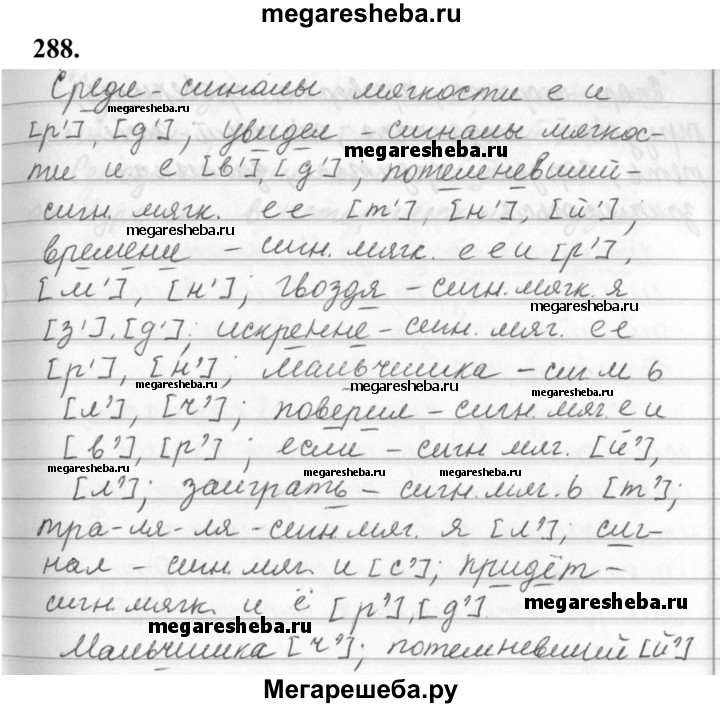 megaresheba.ru
288.
Среди - сигналы мягкости е и
megaresheba.ru
[р'], [д'], увидел - сигналы мягкос-
megaresheba.ru
ти и е [в'], [д']; потемневший -
сигн. мягк. е е [т'], [н'], [й'],
megaresheba.ru
времени - сигн. мягк. е е и [р'],
[м'], [н']; гвоздя - сигн. мягк. я
megaresheba.ru
[з'], [д']; искренне - сигн. мяг. е е
[р'], [н']; мальчишка - сиг м ь
megaresheba.ru megaresheba.ru
[л'], [ч']; поверил - сигн. мяг. е и
[в'], [р']; если - сигн. мяг. [й'],
megaresheba.ru megaresheba.ru megaresheba.ru
[л']; заиграть - сигн. мяг. ь [т'];
тра-ля-ля - сигн. мяг. я [л']; сиг-
нал - сигн. мяг. и [с']; придёт -
сигн. мягк. и ё [р'], [д']
megaresheba.ru
megaresheba.ru
Мальчишка [ч']; потемневший [й']
Мегарешеба.ру